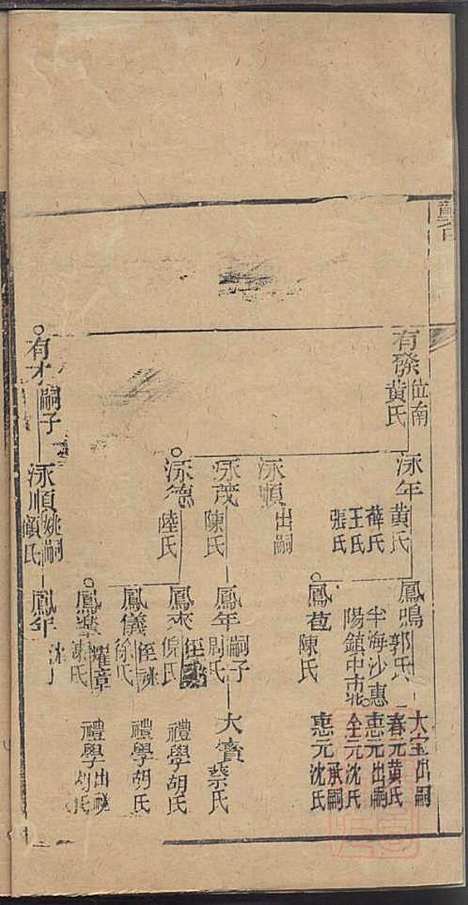 有發
位南
黃氏
泳年
黃氏
薛氏
王氏
張氏
鳳鳴
郭氏
半海沙惠
陽鎮中市北
大宝
出嗣
春元
黃氏
惠元
出嗣
全元
沈氏
鳳苞
陳氏
惠元
承嗣
沈氏
泳順
出嗣
泳茂
陳氏
鳳年
嗣子
周氏
大賓
蔡氏
泳德
陸氏
鳳來
倪氏
禮學
胡氏
鳳儀
徐氏
禮學
胡氏
鳳
耀章
禮學
出
有才
嗣子
泳順
嗣
顧氏
鳳年
沈